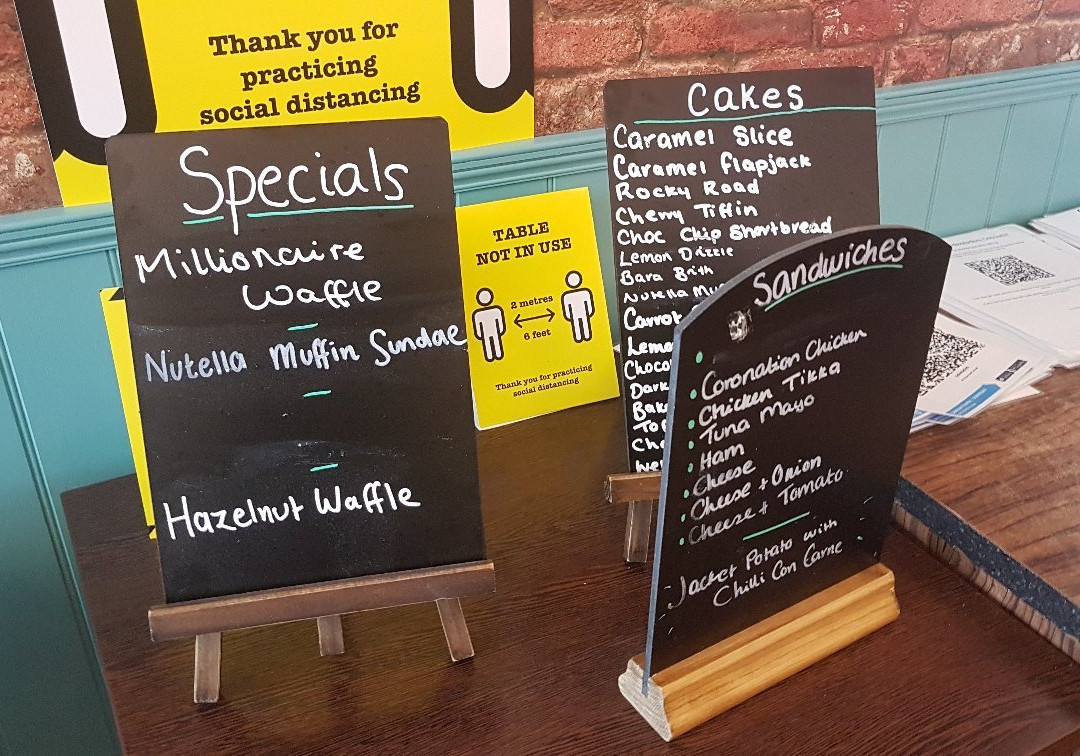 Thank you for
practicing
social distancing
Specials
Millionaire
Waffle
Nutella Muffin Sundae
Hazelnut Waffle
TABLE
NOT IN USE
2 metres
6 feet
Thank you for practicing
social distancing
Cakes
Caramel Slice
Caramel flapjack
Rocky Road
Cherry Tiffin
Choc Chip Shortbread
Lemon Drizzle
Bara Brith
Nutella
Carrot
Dark
Sandwiches
Coronation Chicken
Chicken Tikka
Tuna Mayo
Ham
Cheese
Cheese + Onion
Cheese + Tomato
Jacket Potato with
Chilli Con Carne